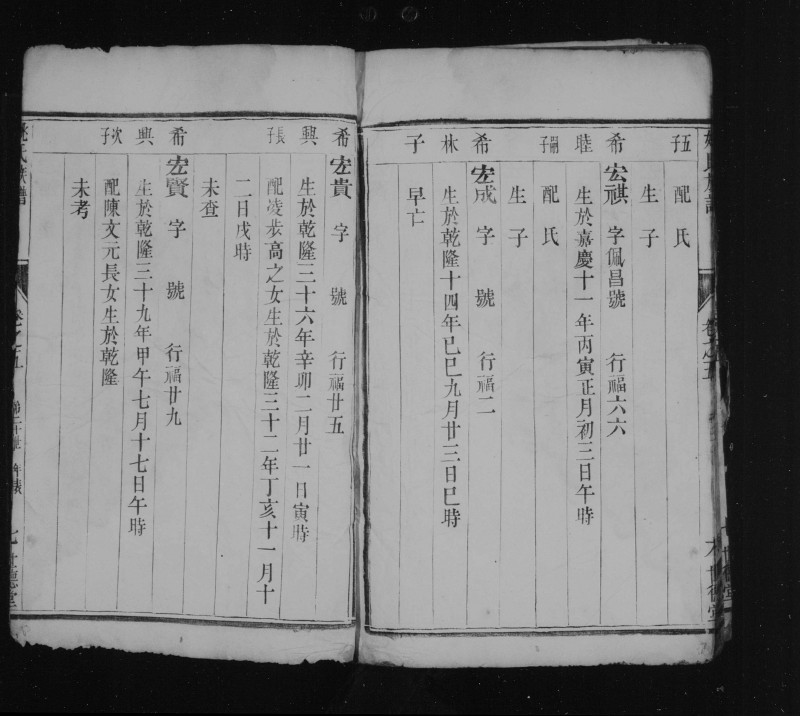 五 配氏
子 生子
希 宏祺 字佩昌號 行福六六
睦 生於嘉慶十一年丙寅正月初三日午時
嗣子 配氏
生子
希 宏成 字 號 行福二
林 生於乾隆十四年己巳九月廿三日巳時
子 早亡
希 宏貴 字 號 行福廿五
興 生於乾隆三十六年辛卯二月廿一日寅時
長子 配凌步高之女生於乾隆三十二年丁亥十一月十
二日戌時
未查
希 宏賢 字 號 行福廿九
興 生於乾隆三十九年甲午七月十七日午時
次子 配陳文元長女生於乾隆
未考
氏族譜
卷之五
七 世德堂